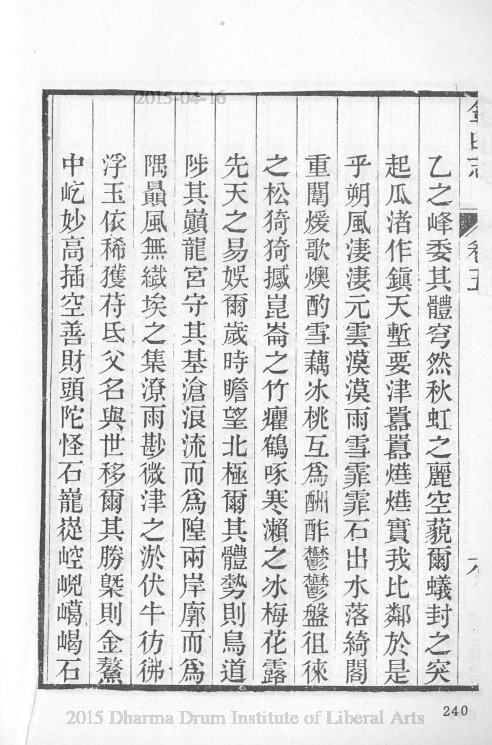 2015-04-16
金山志 卷五 六
乙之峰委其體穹然秋虹之麗空藐爾蟻封之突
起瓜渚作鎮天塹要津囂囂㷸㷸實我比鄰於是
乎朔風凄凄元雲漠漠雨雪霏霏石出水落綺閣
重闈煖歌燠酌雪藕冰桃互爲酬酢鬱鬱盤徂徠
之松猗猗撼崑崙之竹癯鶴啄寒瀨之冰梅花露
先天之易娛爾歲時瞻望北極爾其體勢則鳥道
陟其巔龍宮守其基滄浪流而爲隍兩岸廓而爲
隅贔風無纎埃之集潦雨尠微津之淤伏牛彷彿
浮玉依稀獲苻氐父名與世移爾其勝槩則金鰲
中屹妙高插空善財頭陀怪石巃嵷崆峴嶱嵑石
240
2015 Dharma Drum Institute of Liberal Arts